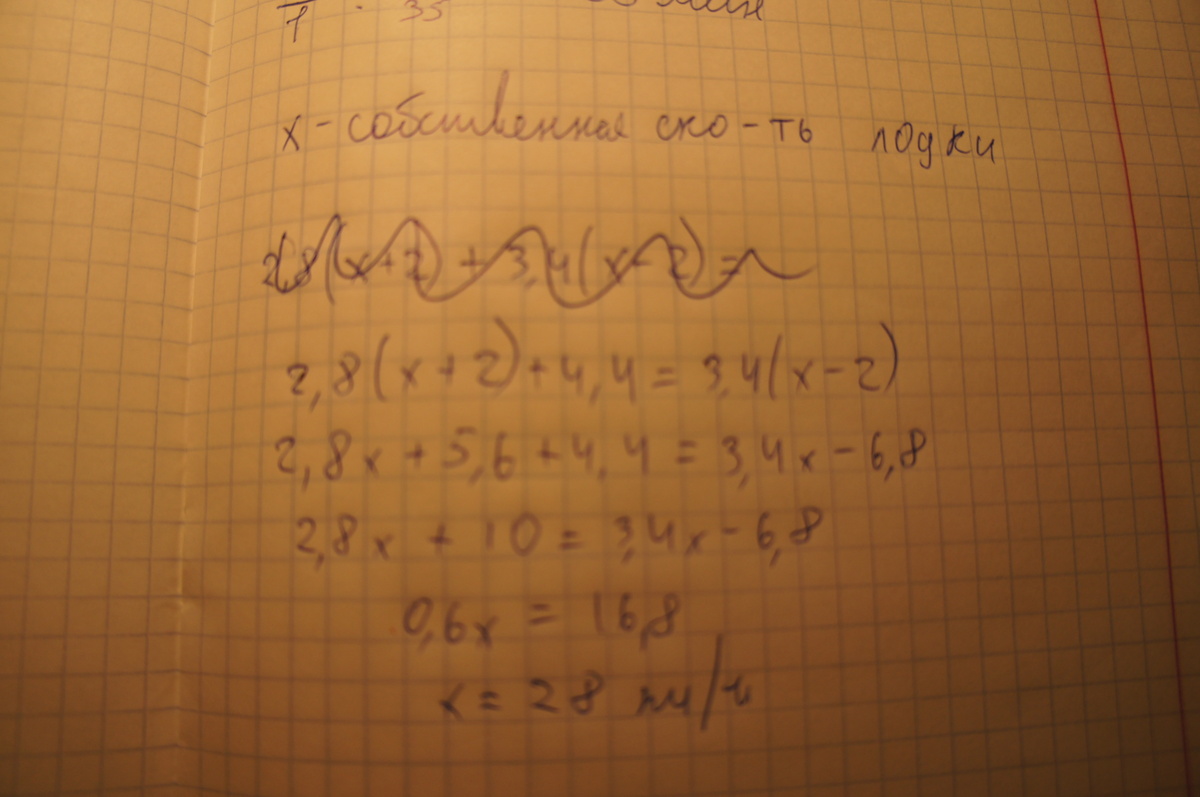 7 · 35
x - собственная ско-ть лодки
2,8(x+2) + 3,4(x-2) =
2,8(x+2)+4,4 = 3,4(x-2)
2,8x + 5,6 + 4,4 = 3,4x - 6,8
2,8x + 10 = 3,4x - 6,8
0,6x = 16,8
x = 28 км/ч